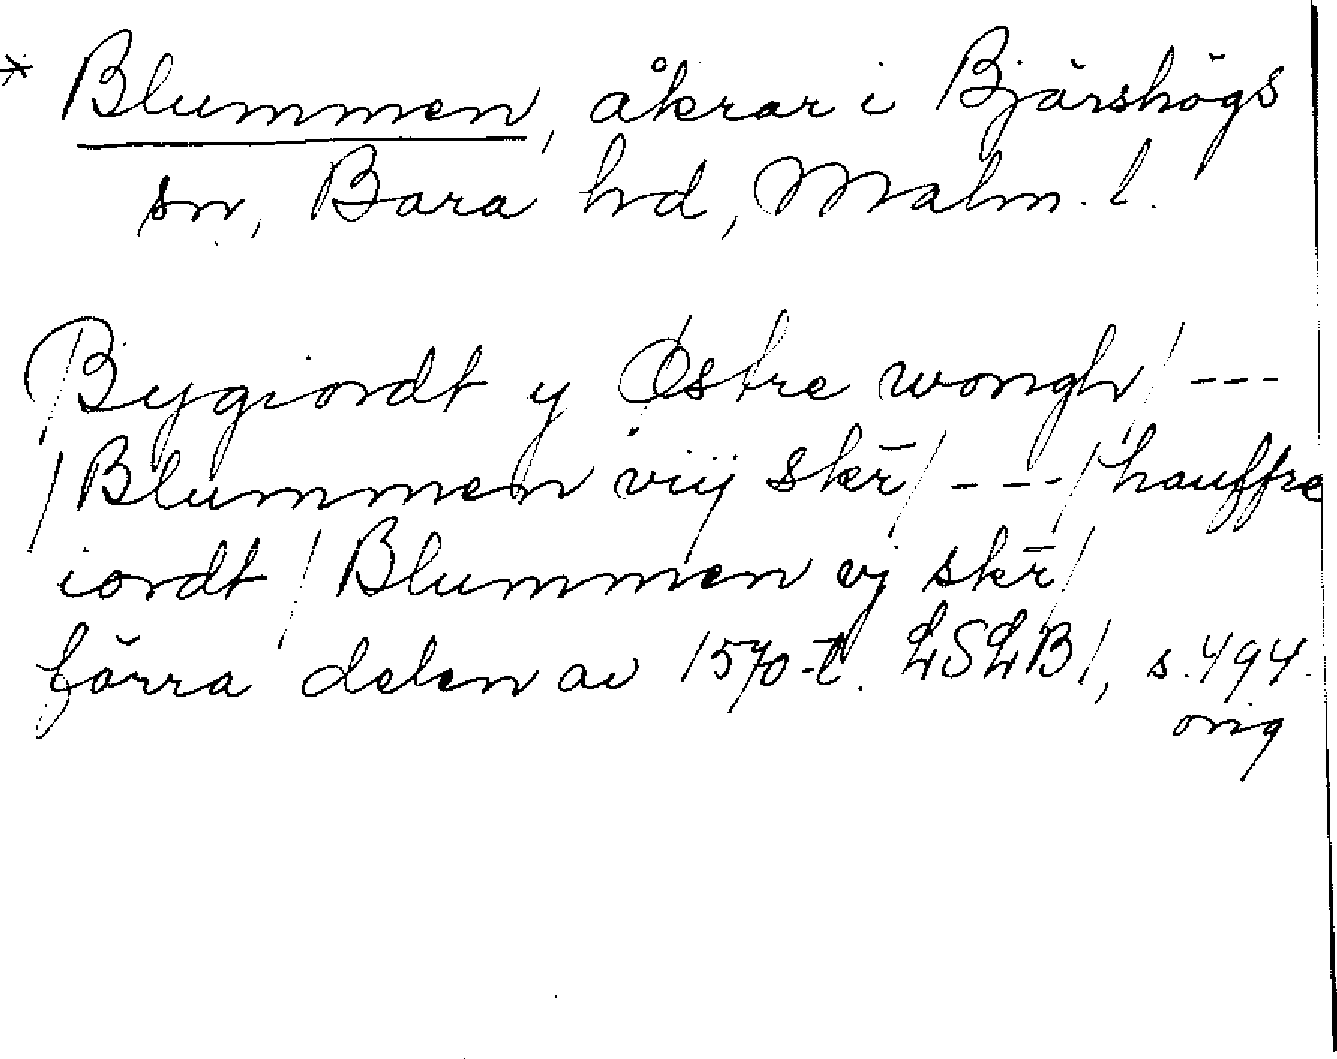 * Blummen, åkrar i Bjärshögs
sn, Bara hd, Malm. l.
/Bygiordt y Østre wongh/ ---
/Blummen viij skr̄/ --- /hauffre
iordt / Blummen vj skr̄/
förra delen av 1570-t. LSLB1, s. 494.
orig